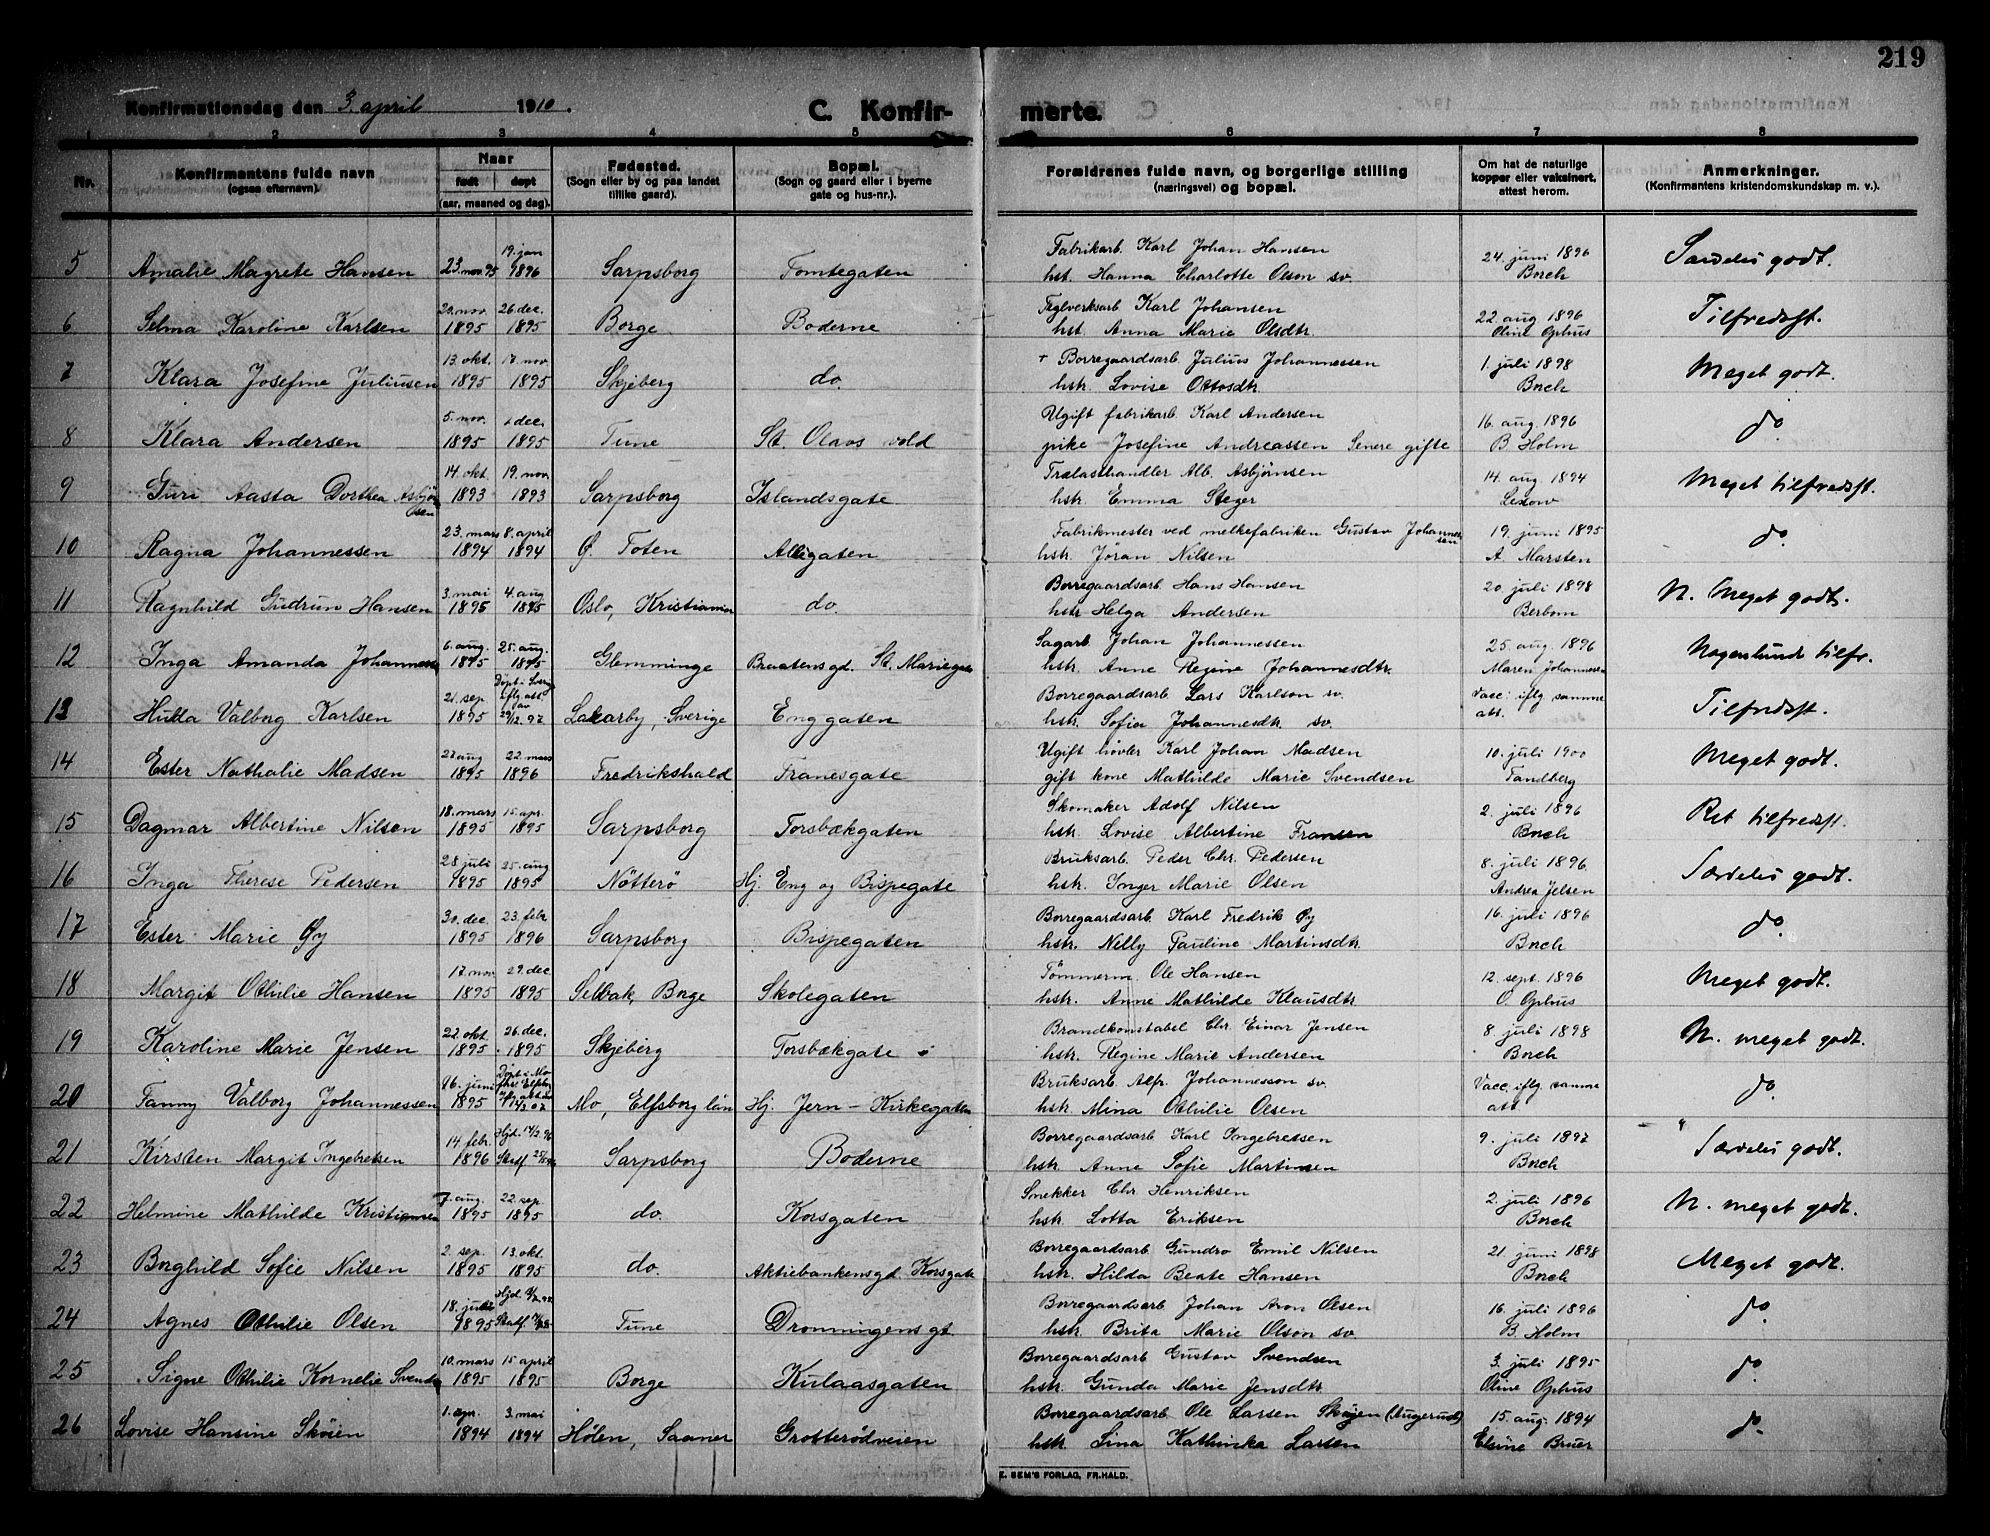 219
Konfirmationsdag den 3. april 1910.
C. Konfir- merte.
1 2 3 4 5 6 7 8
Nr. Konfirmantens fulde navn (ogsaa efternavn). Naar født døpt (aar, maaned og dag). Fødested. (Sogn eller by og paa landet tillike gaard). Bopæl. (Sogn og gaard eller i byerne gate og hus-nr.). Forældrenes fulde navn, og borgerlige stilling (næringsvei) og bopæl. Om hat de naturlige kopper eller vaksinert, attest herom. Anmerkninger. (Konfirmantens kristendomskundskap m. v.).
19. jan Fabrikarb. Karl Johan Hansen 24. juni 1896
5 Amalie Magrete Hansen 23. nov. 95 1896 Sarpsborg Tomtegaten hst. Hanna Charlotte Olson sv. Borch Særdeles godt.
20. nov. 26 dec. Teglverksarb Karl Johansen 22. aug 1896
6 Selma Karoline Karlsen 1895 1895 Borge Boderne hst. Anna Marie Olsdtr. Oline Ophus Tilfredsst.
13. okt. 17. nov. + Borregaardsarb. Julius Johannessen 1. juli 1898
7 Klara Josefine Juliusen 1895 1895 Skjeberg do. hstr. Lovise Ottosdtr. Borch Meget godt.
5. nov. 1 dec. Ugift fabrikarb. Karl Andersen 16. aug. 1896
8 Klara Andersen 1895 1895 Tune St. Olavs vold pike Josefine Andreassen Senere gifte B. Holm do
14. okt 19. nov. Trælasthandler Alb. Asbjønsen 14. aug 1894
9 Guri Aasta Dorthea Asbjønsen 1893 1893 Sarpsborg Islandsgate hstr. Emma Steger Lexow Meget tilfredsst.
23. mars 8. april Fabrikmester ved melkefabriken Gustav Johannessen 19. juni 1895
10 Ragna Johannessen 1894 1894 Ø. Toten Allégaten hstr. Jøran Nilsen A. Marsten do.
3. mai 4. aug Borregaardsarb. Hans Hansen 20. juli 1898
11 Ragnhild Gudrun Hansen 1895 1895 Oslo, Kristiania do. hstr. Helga Andersen Berbom N. Meget godt.
6. aug. 25. aug. Sagarb. Johan Johannessen 25. aug. 1896
12 Inga Amanda Johannessen 1895 1895 Glemminge Braatensgd. St. Mariegate hstr. Anne Regine Johannesdtr. Maren Johannessen Nogenlunde tilfr.
21. sep Døpt i Sverig iflg. att. av Borregaardsarb. Lars Karlson sv. Vacc. iflg samme
13 Hulda Valborg Karlsen 1895 29/12. 97 Laxarby, Sverige Enggaten hstr. Sofia Johannesdtr. sv. att. Tilfredsst.
27 aug 22. mars Ugift høvler Karl Johan Madsen 10. juli 1900
14 Ester Nathalie Madsen 1895 1896 Fredrikshald Franesgate gift kone Mathilde Marie Svendsen Tandberg Meget godt.
18. mars 15. apr. Skomaker Adolf Nilsen 2. juli 1896
15 Dagmar Albertine Nilsen 1895 1895 Sarpsborg Torsbækgaten hstr. Lovise Albertine Fransen Borch Ret tilfredsst.
28. juli 25. aug Bruksarb. Peder Chr. Pedersen 8. juli 1896
16 Inga Therese Pedersen 1895 1895 Nøtterø Hj. Eng og Bispegate hstr. Inger Marie Olsen Andrea Jelsen Særdeles godt.
30. dec. 23. febr. Borregaardsarb. Karl Fredrik Øy 16. juli 1896
17 Ester Marie Øy 1895 1896 Sarpsborg Bispegaten hstr. Nelly Pauline Martinsdtr. Borch do.
17. nov. 29. dec. Tømmerm. Ole Hansen 12. sept. 1896
18 Margit Othilie Hansen 1895 1895 Selbak, Borge Skolegaten hstr. Anne Mathilde Klausdtr. O. Ophus Meget godt.
22. okt 26. dec. Brandkonstabel Chr. Einar Jensen 8. juli 1898
19 Karoline Marie Jensen 1895 1895 Skjeberg Torsbækgate hstr. Regine Marie Andersen Borch N. meget godt.
16. juni Døpt i Mo Bruksarb. Alfr. Johannesson sv. Vacc. iflg. samme
20 Fanny Valborg Johannessen 1895 Mo, Elfsborg län Hj. Jern - Kirkegaten hstr. Mina Othilie Olsen att. do.
14. febr. Hjd. 14/2. 96 Borregaardsarb Karl Ingebretsen 9. juli 1897
21 Kirsten Margit Ingebretsen 1896 Stadf. Sarpsborg Boderne hstr. Anne Sofie Martinsen Borch Særdeles godt.
7. aug. 22. sep. Snekker Chr. Henriksen 2. juli 1896
22 Helmine Mathilde Kristiansen 1895 1895 do. Korsgaten hstr. Lotta Eriksen Borch N. meget godt.
2. sep. 13. okt Borregaardsarb Gundro Emil Nilsen 21. juni 1898
23 Borghild Sofie Nilsen 1895 1895 do. Aktiebankensgd. Korsgate hstr. Hilda Beate Hansen Borch Meget godt.
18. juli Hjd. Borregaardsarb. Johan Aron Olsen 16. juli 1896
24 Agnes Othilie Olsen 1895 Stadf. Tune Dronningensgt. hstr. Brita Marie Olson sv B. Holm do.
10. mars 15. april Borregaardsarb Gustav Svendsen 3. juli 1895
25 Signe Othilie Kornelie Svends 1895 1895 Borge Kulaasgaten hstr. Gunda Marie Jensdtr. Oline Ophus do.
1. apr. 3. mai Borregaardsarb. Ole Larsen Skøjen (Augerud) 15. aug. 1894
26 Lovise Hansine Skøien 1894 1894 Hølen, Saaner Grotterødveien hstr. Lina Kathinka Larsen Elsine Bruer do.
E. SEM'S FORLAG, FR.HALD.